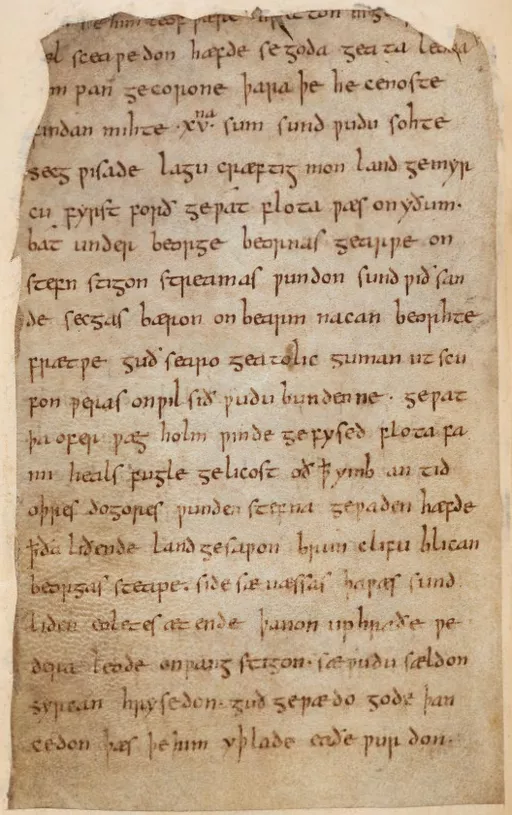 him leof ƿære
el sceaƿedon hæfde se goda geata leoda
m pan gecorone þara þe he cenoste
findan mihte ·xv·na sum sund ƿudu sohte
secg ƿisade lagu cræftig mon land gemyr
cu fyrst forð geƿat flota ƿæs on yðum·
bat under beorge beornas gearƿe on
stefn stigon streamas ƿundon sund ƿið san
de secgas bæron on bearm nacan beorhte
frætƿe guð searo geatolic guman ut scu
fon ƿeras on ƿil sið ƿudu bundenne · geƿat
þa ofer ƿæg holm ƿinde gefysed flota fa
mi heals fugle gelicost oð ꝥ ymb an tid
oþres dogores ƿunden stefna geƿaden hæfde
ꝥ ða liðende land gesaƿon brim clifu blican
beorgas steape. side sænæssas þa ƿæs sund
liden eoletes æt ende þanon up hraðe ƿe
dera leode on ƿang stigon· sæ ƿudu sældon
syrcan hrysedon· guð geƿædo gode þan
cedon þæs þe him yþ lade eaðe ƿur don·